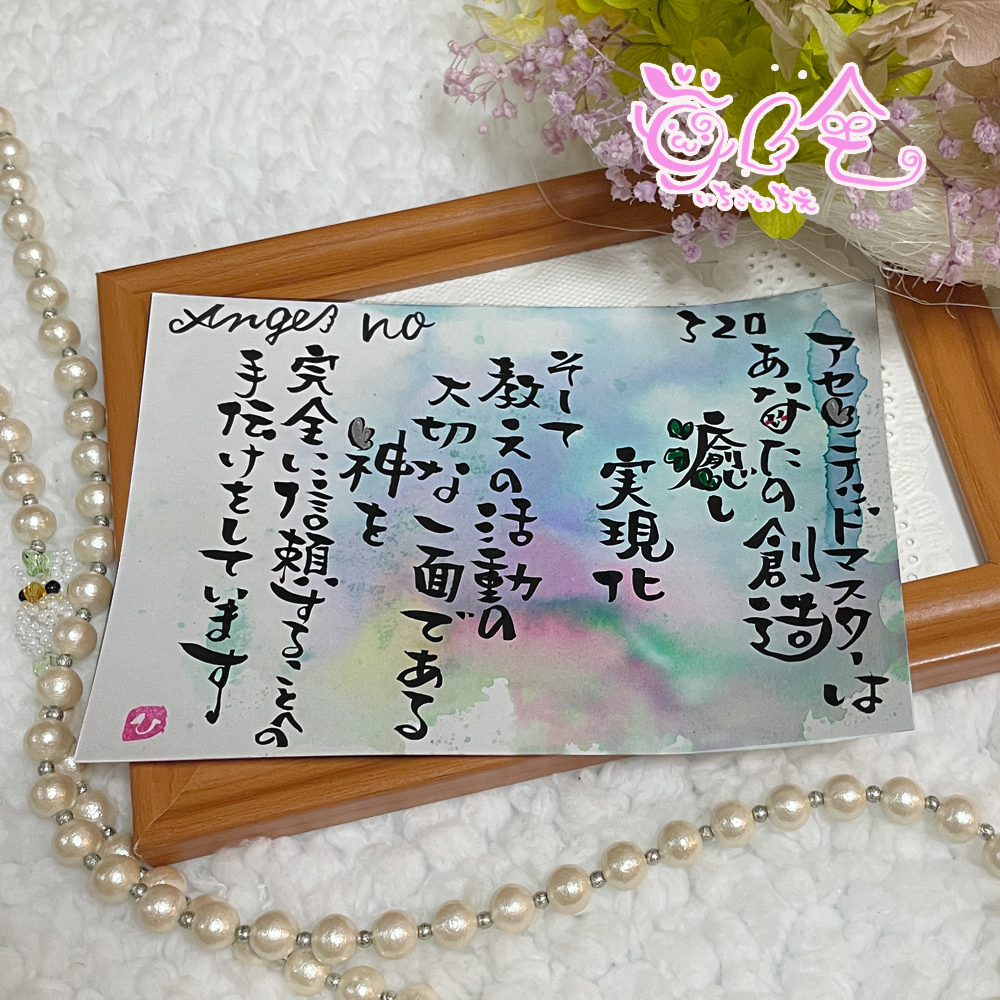 Angel no 320
アセンテッドマスターは
あなたの創造
癒し
実現化
そして
教えの活動の
大切な一面である
神を
完全に信頼することへの
手伝けをしています
ひ
いちごいちえ